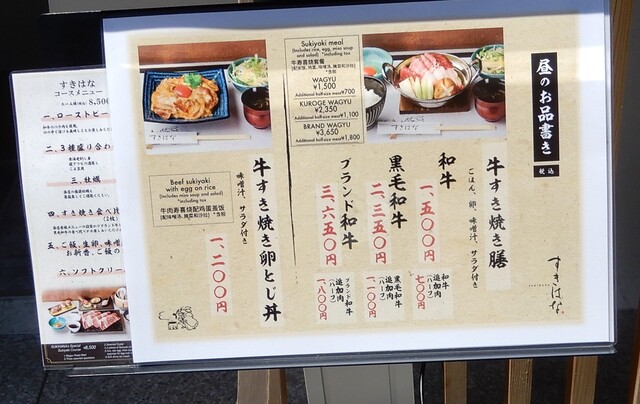 昼のお品書き
税込
すきはな
牛すき焼き膳
ごはん、卵、味噌汁、サラダ付き
和牛
一、五〇〇円
黒毛和牛
二、三五〇円
ブランド和牛
三、六五〇円
和牛
追加肉
(ハーフ)
七〇〇円
黒毛和牛
追加肉
(ハーフ)
一、一〇〇円
ブランド和牛
追加肉
(ハーフ)
一、八〇〇円
Sukiyaki meal
(Includes rice, egg, miso soup
and salad) *including tax
牛寿喜烧套餐
WAGYU
¥1,500
Additional half-size meat¥700
KUROGE WAGYU
¥2,350
Additional half-size meat¥1,100
BRAND WAGYU
¥3,650
Additional half-size meat¥1,800
牛すき焼き卵とじ丼
味噌汁、サラダ付き
一、二〇〇円
Beef sukiyaki
with egg on rice
(Includes miso soup and salad)
*including tax
牛肉寿喜烧配鸡蛋盖饭
すきはな
コースメニュー
8,500
一、ローストビー
二、3種盛り合わ
三、牡蠣
四、すき焼き食べ
五、ご飯、生卵、味噌
お新香、ご飯の
六、ソフトクリー
SUKIHANA Special
Sukiyaki Course ¥8,500